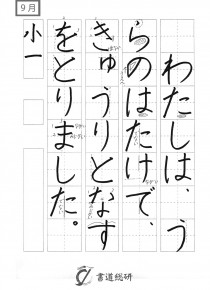 9月
わたしは、う
らのはたけで、
きゅうりとなす
をとりました。
小一
書道総研